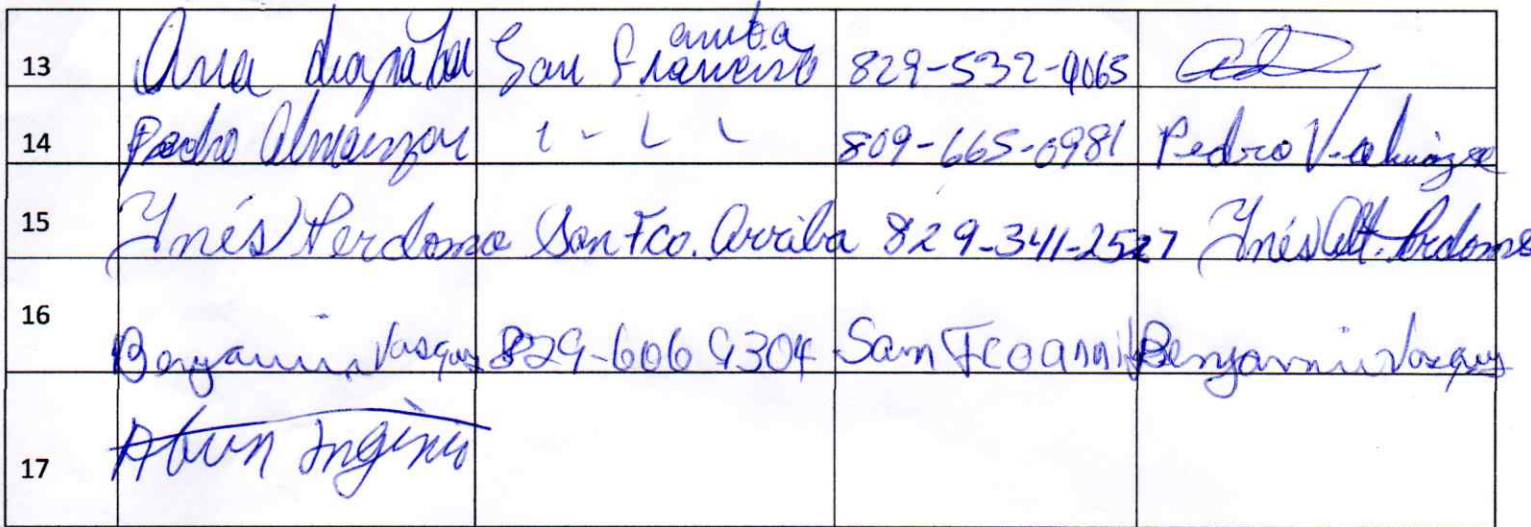 13 Ana San Francisco arriba 829-532-4065
14 Pedro Almanzar 809-665-0981 Pedro V. Almanzar
15 Inés Perdomo San Fco. Arriba 829-341-2527 Inés Alt. Perdomo
16 Benjamin Vasquez 829-606 9304 San Fco Benjamin Vasquez
17